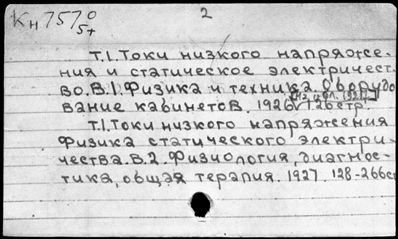 Кн 757⁰ 2
5+
Т.1. Токи низкого напряже-
ния и статическое электричест-
во. В.1. Физика и техника. Оборудо-
вание кабинетов. 1926. 126стр.
Т.1. Токи низкого напряжения
Физика статического электри-
чества. В.2. Физиология, диагнос-
тика, общая терапия. 1927. 128-266ст